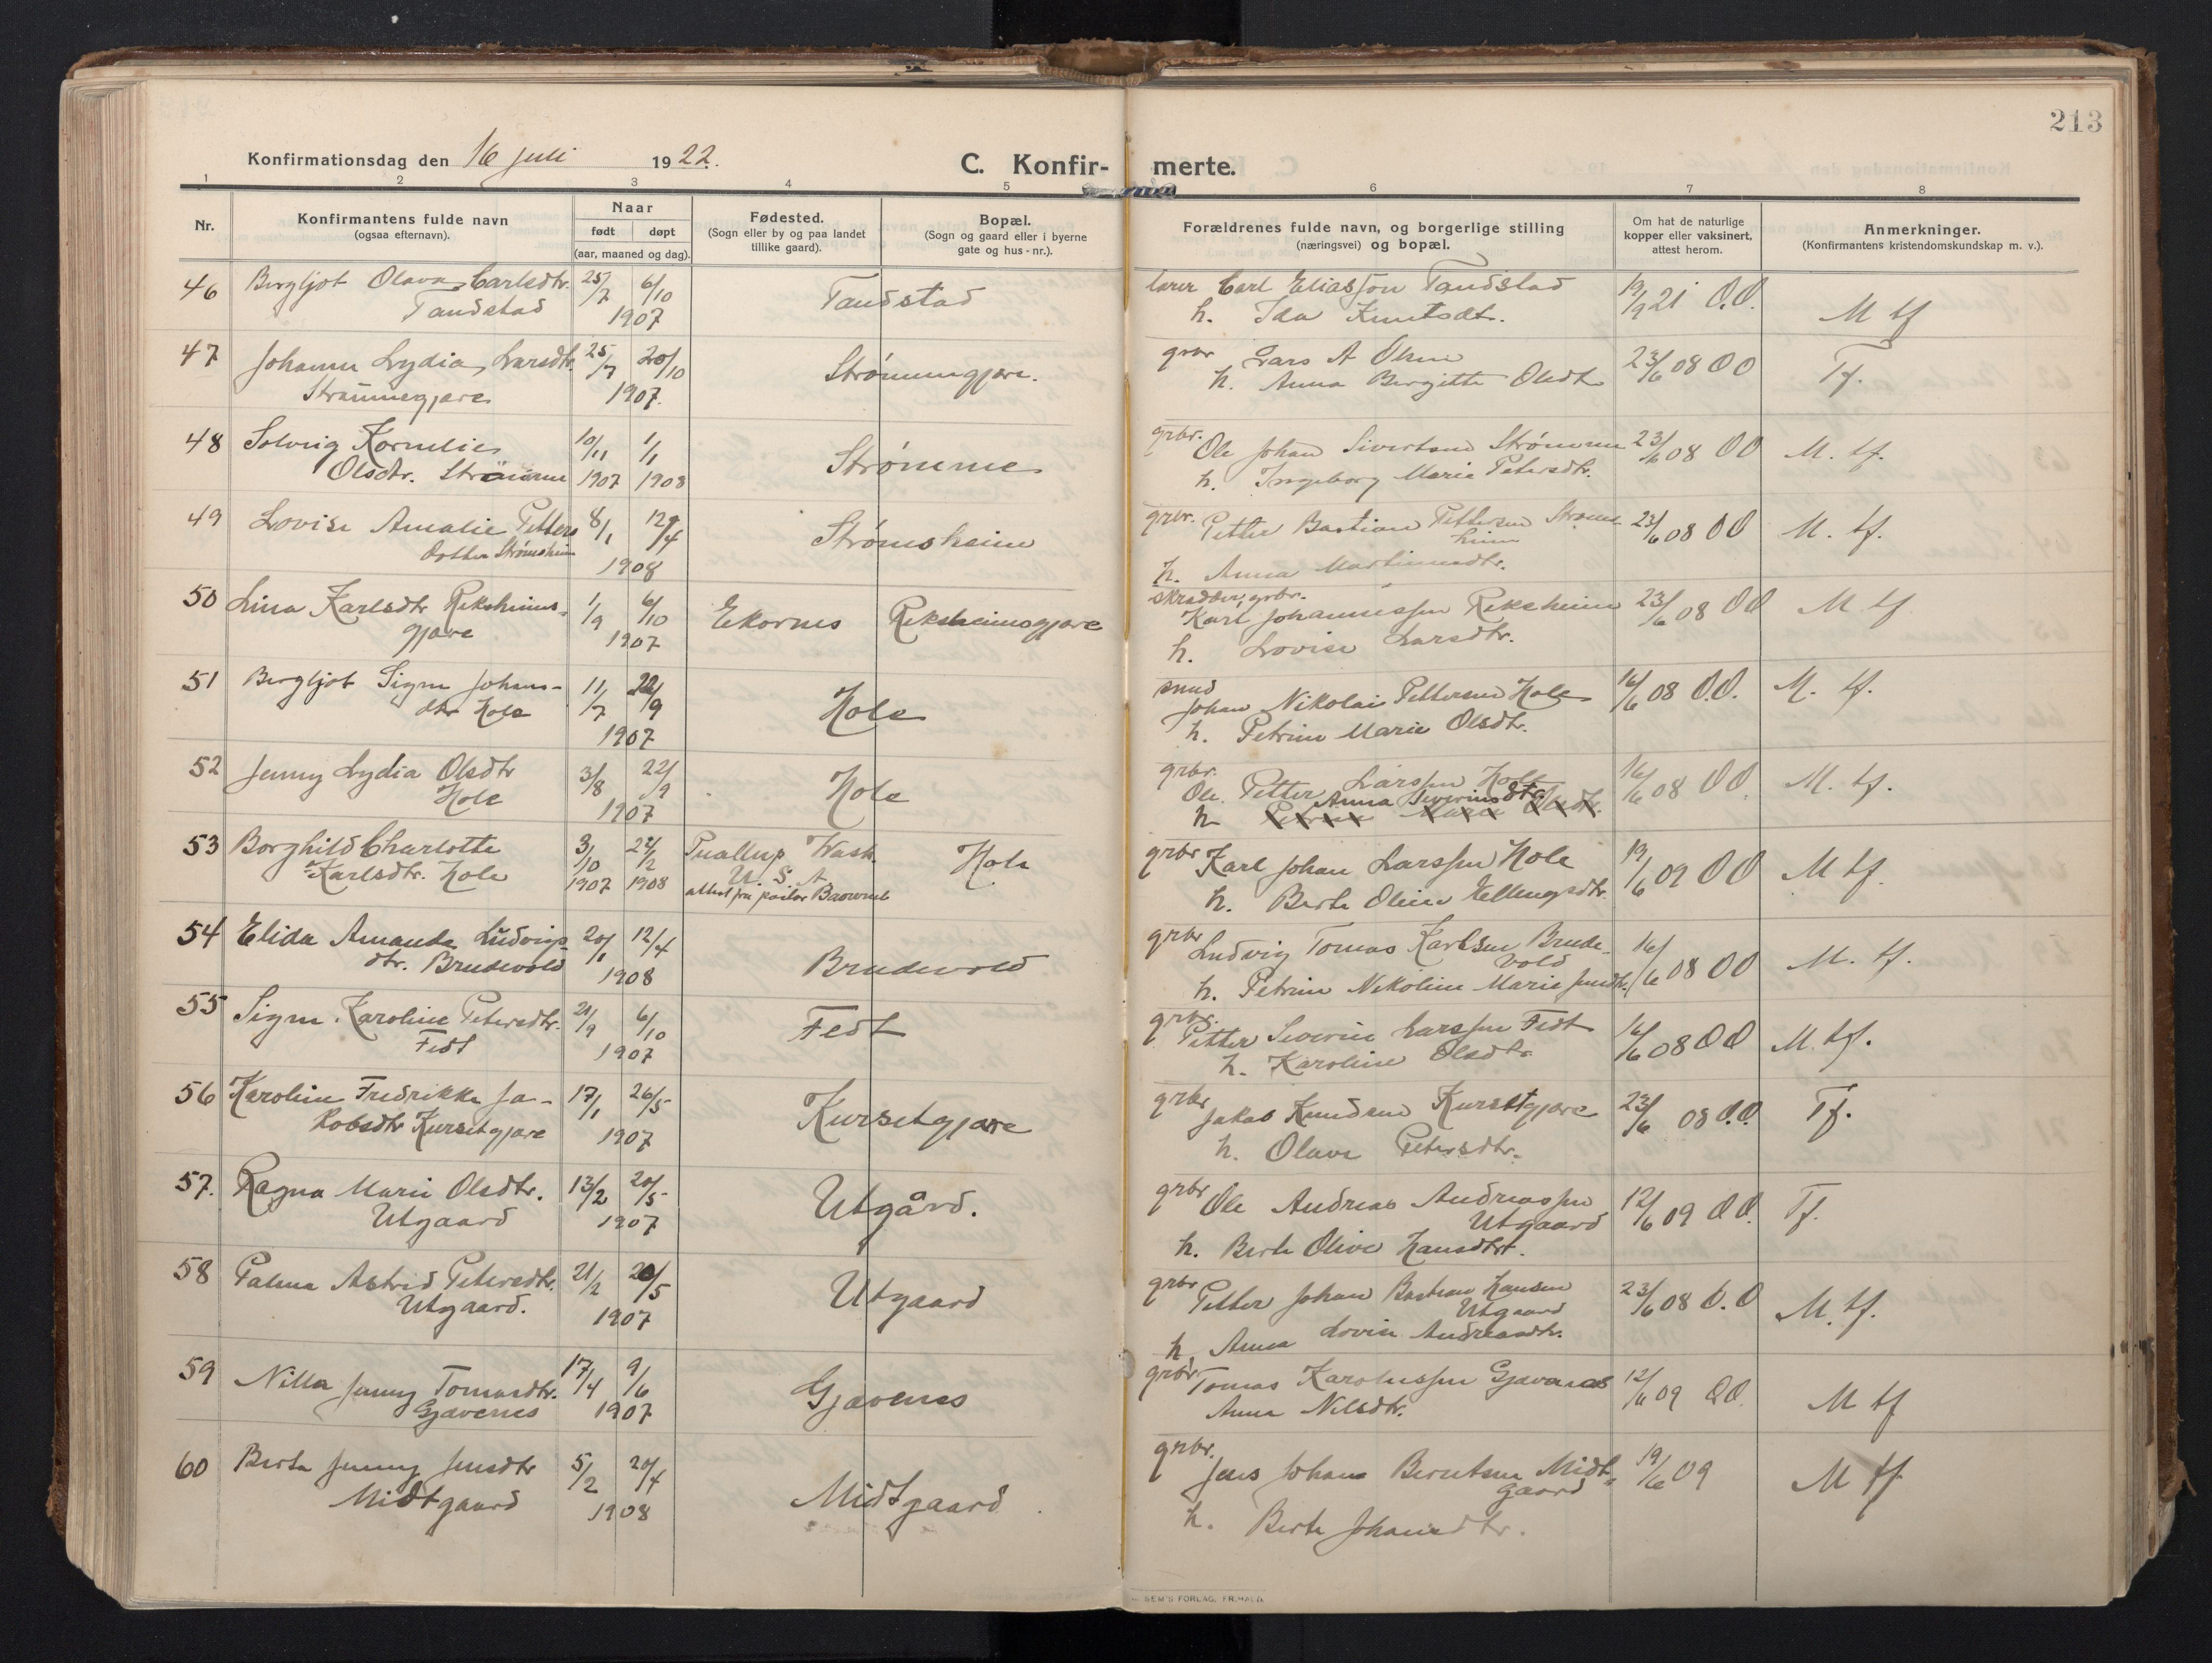 213
Konfirmationsdag den 16 juli 1922.
C. Konfirmerte.
1 2 3 4 5 6 7 8
Nr.
Konfirmantens fulde navn
(ogsaa efternavn).
Naar
født døpt
(aar, maaned og dag).
Fødested.
(Sogn eller by og paa landet
tillike gaard).
Bopæl.
(Sogn og gaard eller i byerne
gate og hus-nr.).
Forældrenes fulde navn, og borgerlige stilling
(næringsvei) og bopæl.
Om hat de naturlige
kopper eller vaksinert,
attest herom.
Anmerkninger.
(Konfirmantens kristendomskundskap m. v.).
46 Bergljot Olava Carlsdtr. 25/7 6/10 Tandstad lærer Carl Eliassen Tandstad 19/9 21 O.O. M tf
Tandstad 1907 h. Ida Knutsdt.
47 Johanne Lydia Larsdtr. 25/7 20/10 Strømmegjære. grbr Lars A Olsen 23/6 08 OO Tf.
Strømmegjære 1907. h. Anna Bergitte Olsdt
48 Solveig Kornelie 10/11 1/1 Strømme grbr. Ole Johan Sivertsen Strømme 23/6 08 OO M. tf.
Olsdtr. Strømme 1907 1908 h. Ingeborg Marie Petersdtr.
49 Lovise Amalie Petters 8/1 12/4 Strømsheim grbr. Petter Bastian Pettersen Strøms- 23/6 08 OO M. tf.
dotter Strømsheim 1908 heim
h. Anna Martinusdtr.
50 Lina Karlsdtr Riksheims- 1/9 6/10 Ekornes Riksheimsgjære skrædder, grbr. Karl Johannessen Riksheim 23/6 08 OO M tf
gjære 1907 h. Lovise Larsdtr.
51 Bergljot Signe Johans- 11/7 22/9 Hole smed Johan Nikolai Pettersen Hole 16/6 08 O.O. M. tf.
dtr Hole 1907 h. Petrine Marie Olsdtr.
52 Jenny Lydia Olsdtr 3/8 22/9 Hole grbr. Ole Petter Larssen Hole 16/6 08 OO M. tf.
Hole 1907 Anna Severinsdtr.
h Petrine Marie Olsdtr.
53 Borghild Charlotte 3/10 24/2 Puallup Wash. Hole grbr Karl Johan Larssen Hole 19/6 09 OO M tf.
Karlsdtr. Hole 1907 1908 U. S. A h. Berte Oline Hellingsdtr.
attest fra pastor
54 Elida Amanda Ludvigs- 20/1 12/4 Brudevold grbr Ludvig Tomas Karlsen Brude- 16/6 08 OO M. tf.
dtr. Brudevold 1908 vold
h. Petrine Nikoline Marie Jensdtr.
55 Signe Karoline Petersdtr. 21/9 6/10 Fedt grbr. Petter Severin Larssen Fedt 16/6 08 OO M. tf.
Fedt 1907 h. Karoline Olsdtr
56 Karoline Fredrikke Ja- 17/1 26/5 Kursetgjære grbr Jakob Knudsen Kursetgjære 23/6 08 O.O. Tf.
kobsdtr Kursetgjære 1907 h. Olave Petersdtr.
57. Ragna Marie Olsdtr. 13/2 20/5 Utgård. grbr Ole Andreas Andreassen 12/6 09 OO. Tf.
Utgaard 1907 Utgaard
h. Berte Olive Hansdtr.
58 Palma Astrid Petersdtr. 21/2 20/5 Utgaard grbr Petter Johan Bastian Hansen 23/6 08 O.O M. tf.
Utgaard. 1907 Utgaard
h. Anna Lovise Andreasdtr.
59 Nilla Jenny Tomasdtr. 17/4 9/6 Gjævenes grbr Tomas Karolussen Gjævenes 12/6 09 OO. M tf
Gjævenes 1907 Anne Nilsdtr.
60 Berte Jenny Jensdtr 5/2 20/4 Midtgaard grbr. Jens Johan Berntsen Midt- 19/6 09 M tf
Midtgaard 1908 gaard
h. Berte Johansdtr.
SEM'S FORLAG, FR.HALD.